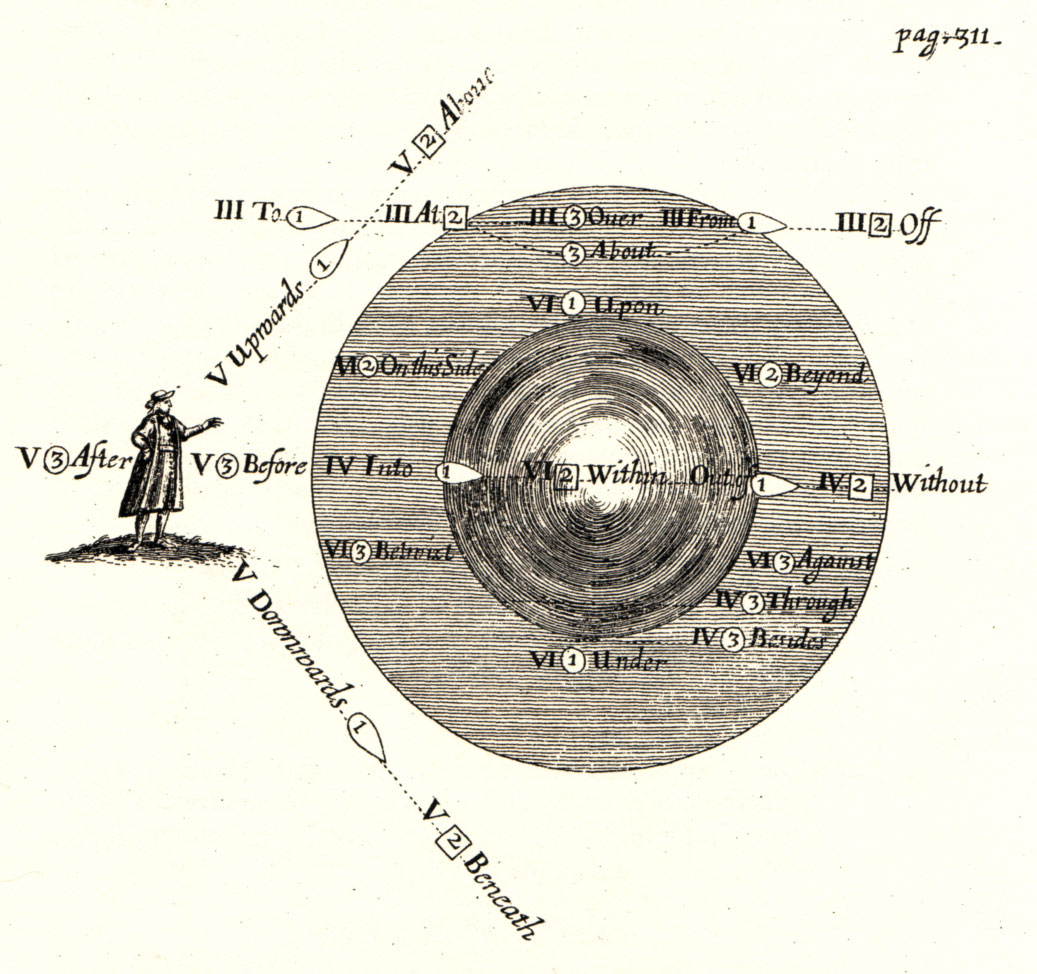 pag. 311.
V 2 Above
III To 1 III At 2 III 3 Over III From 1 III 2 Off
3 About
1
V Upwards
VI 1 Upon
VI 2 On this Side
VI 2 Beyond
V 3 After V 3 Before IV Into 1 VI 2 Within Out of 1 IV 2 Without
VI 3 Betwixt
VI 3 Against
IV 3 Through
IV 3 Besides
VI 1 Under
V Downwards 1
V 2 Beneath